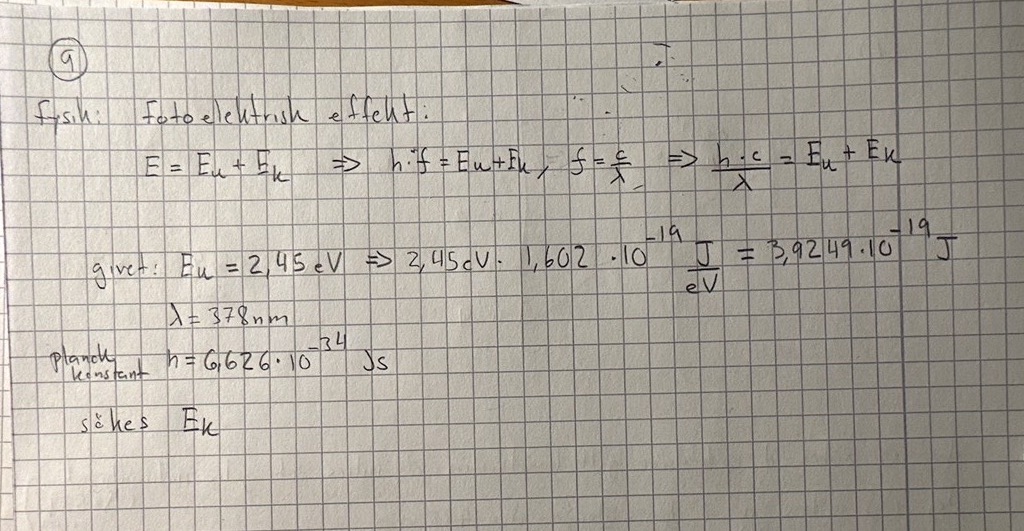 9
fysik: Fotoelektrisk effekt:
E = Eu + Ek ⇒ h·f = Eu+Ek, f = c/λ ⇒ h·c/λ = Eu + Ek
givet: Eu = 2,45 eV ⇒ 2,45 eV · 1,602 · 10^-19 J/eV = 3,9249·10^-19 J
λ = 378nm
planck konstant h = 6,626·10^-34 Js
sökes Ek